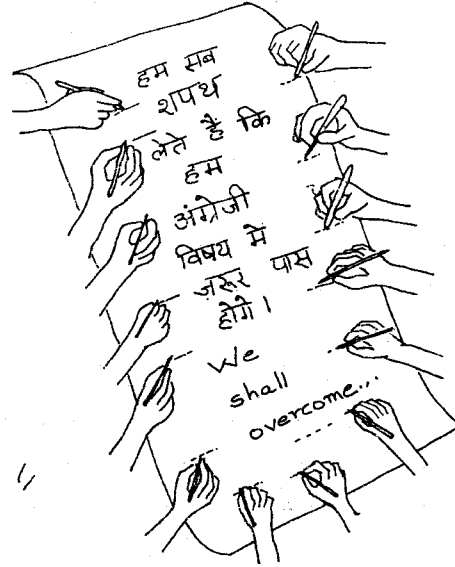 हम सब
शपथ
लेते हैं कि
हम
अंग्रेजी
विषय में
ज़रूर पास
होगे।
We
shall
overcome...